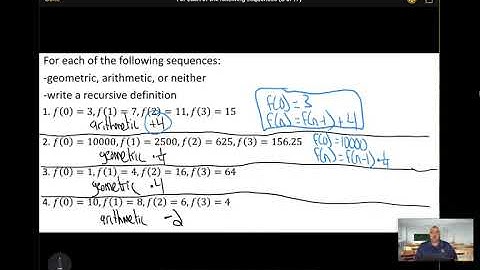 For each of the following sequences:
-geometric, arithmetic, or neither
-write a recursive definition
1. f(0) = 3, f(1) = 7, f(2) = 11, f(3) = 15
arithmetic +4
f(0)=3
f(n)=f(n-1)+4
2. f(0) = 10000, f(1) = 2500, f(2) = 625, f(3) = 156.25
geometric
f(0)=10000
3. f(0) = 1, f(1) = 4, f(2) = 16, f(3) = 64
geometric ·4
4. f(0) = 10, f(1) = 8, f(2) = 6, f(3) = 4
arithmetic -2